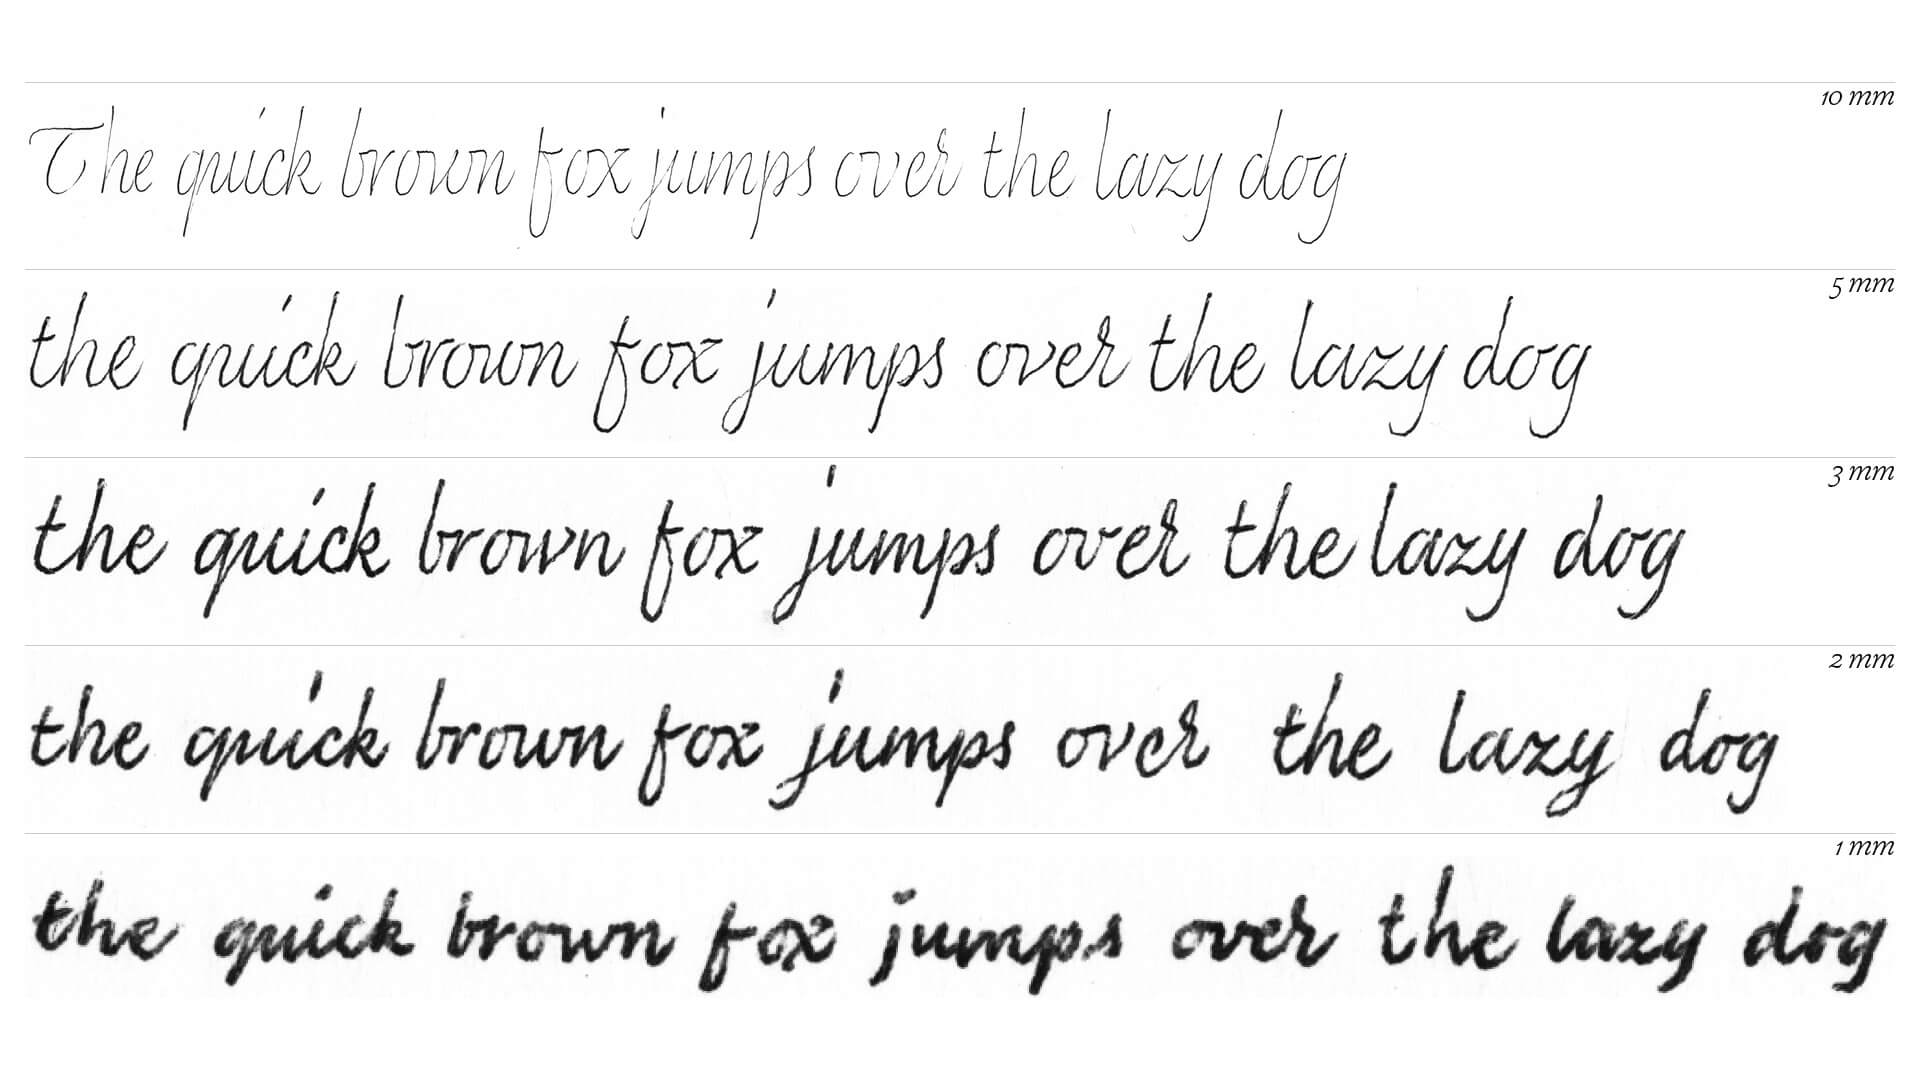 10 mm
The quick brown fox jumps over the lazy dog
5 mm
the quick brown fox jumps over the lazy dog
3 mm
the quick brown fox jumps over the lazy dog
2 mm
the quick brown fox jumps over the lazy dog
1 mm
the quick brown fox jumps over the lazy dog